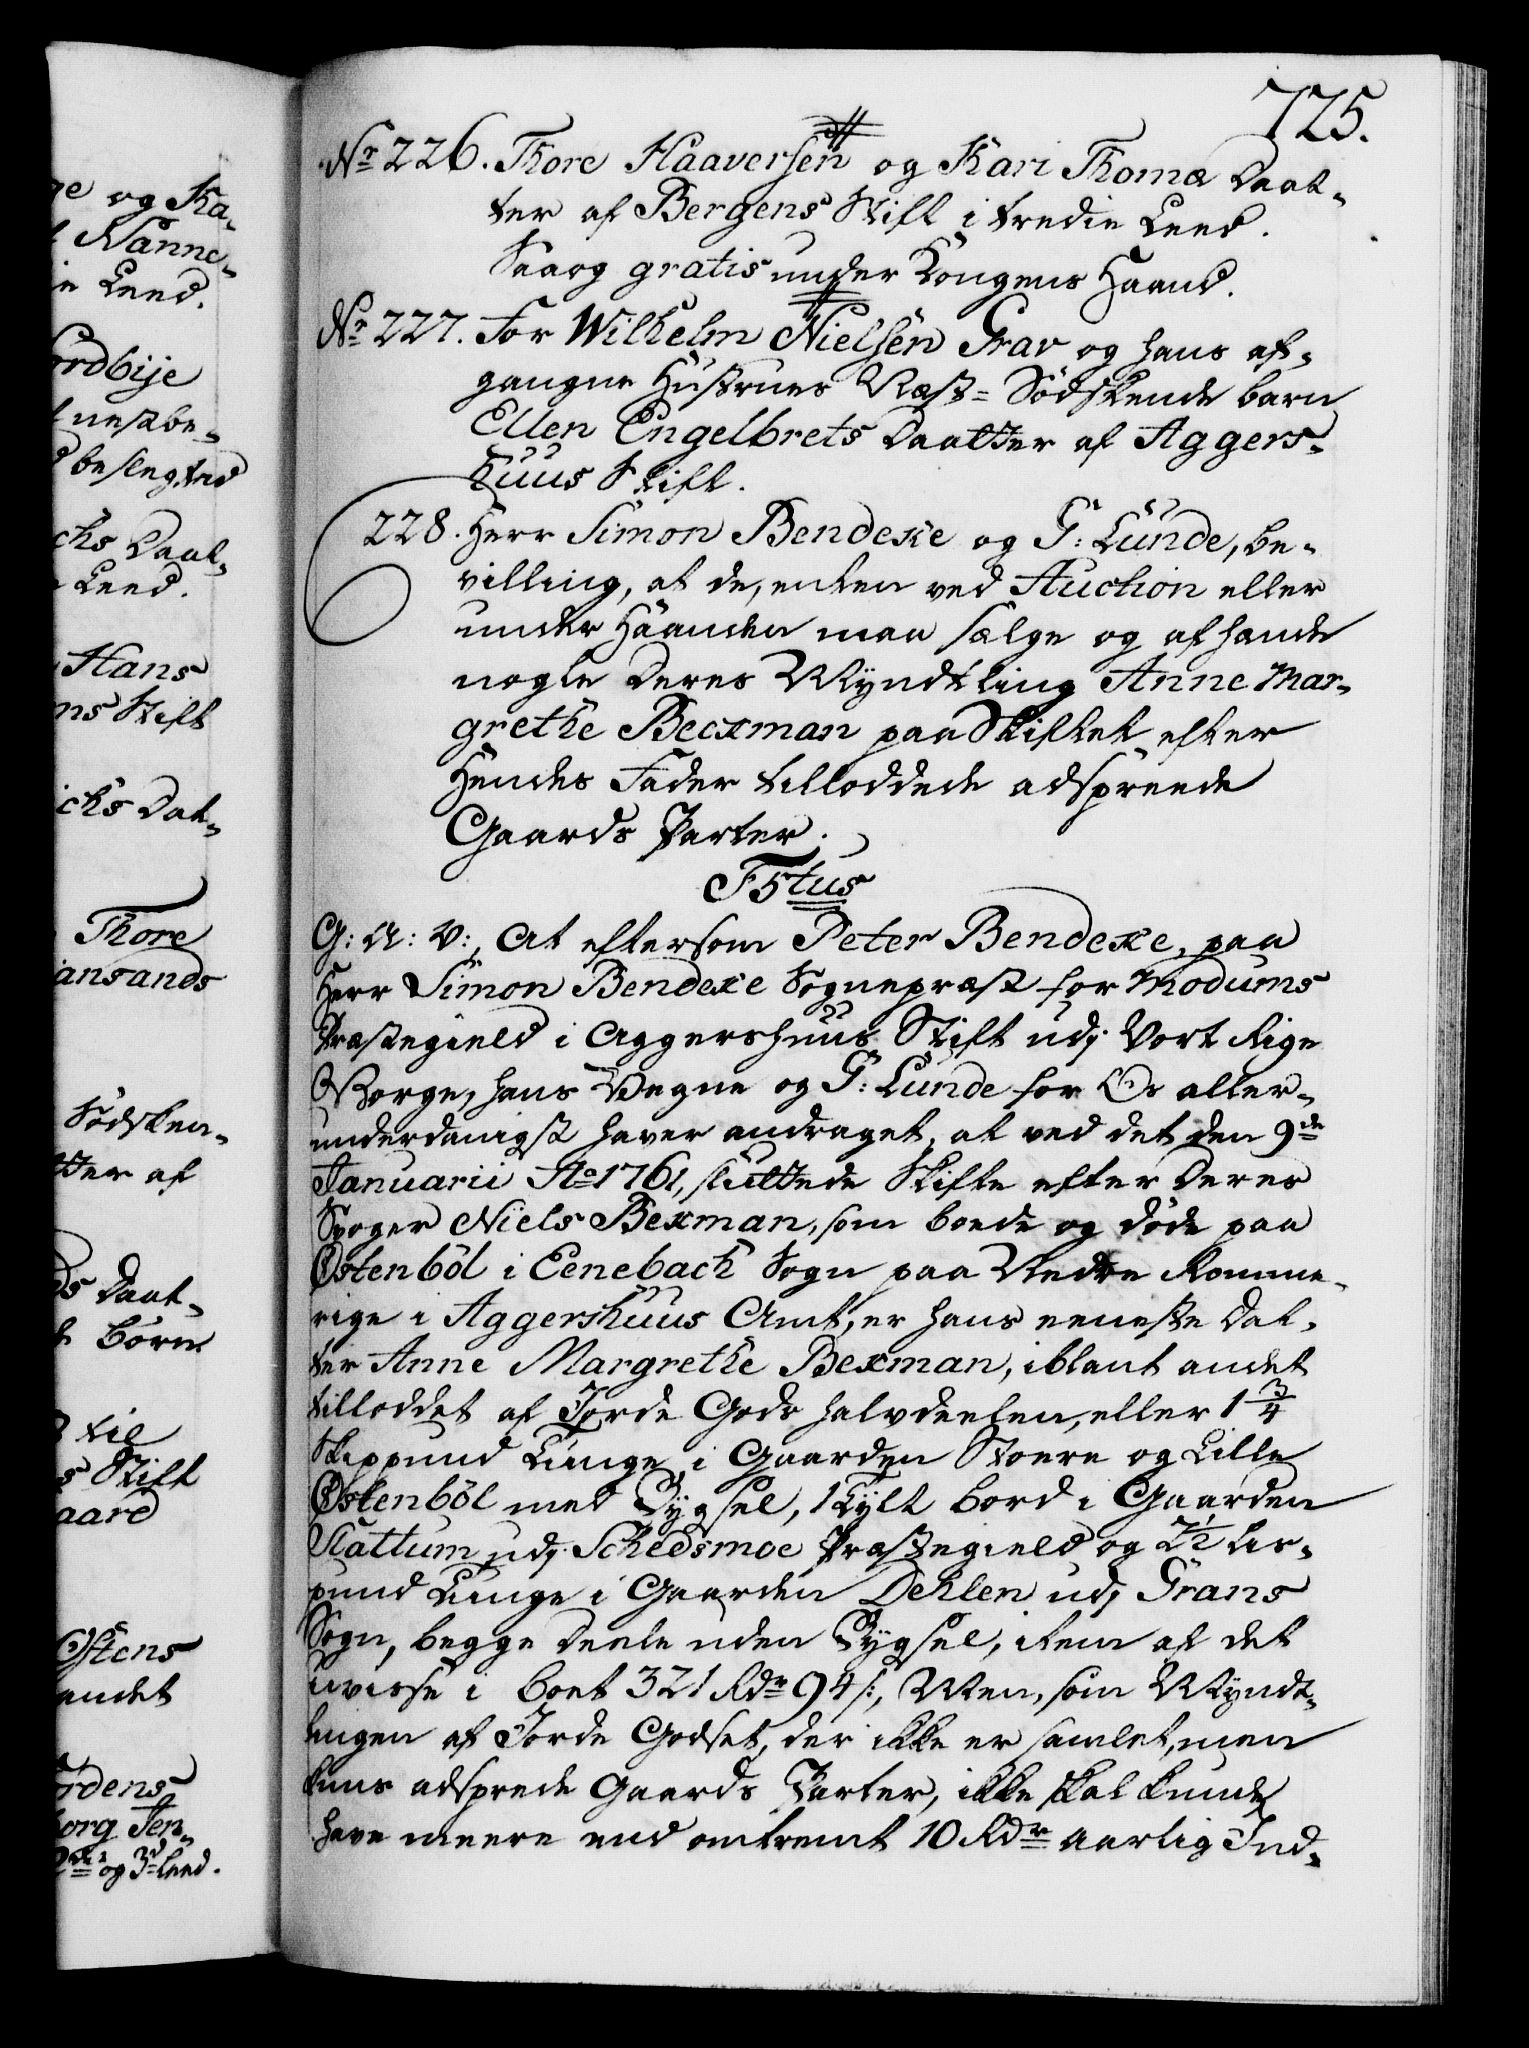 725.
Nr 226. Thore Haaversen og Kari Thomæ Daat-
ter af Bergens Stift i tredie Leed.
Saaog gratis under Kongens Haand.
Nr 227. For Wilhelm Nielsen Grav og hans af-
gangne Hustrues Næst-Sødskende barn
Ellen Engelbrets Daatter af Aggers-
huus Stift.
228. Herr Simon Bendeke og G: Lunde, be-
villing, at de, enten ved Auction eller
under Haanden maa sælge og afhænde
nogle deres Myndtling Anne Mar-
grethe Becxman paa Skiftet efter
Hendes Fader tilloddede adspreede
Gaards Parter.
F5tus
G: A: V:, At eftersom Peter Bendexe, paa
Herr Simon Bendexe Sognepræst for Modums
Præstegield i Aggershuus Stift udj Vort Rige
Norge, hans Vegne og G: Lunde for Os aller-
underdanigst haver andraget, at ved det den 9de
Januarii Ao 1761, sluttede Skifte efter deres
Svoger Niels Bexman, som boede og døde paa
Østenbøl i Eenebach Sogn paa Nedre Romme-
rige i Aggershuus Amt, er hans eeneste Dat-
ter Anne Margrethe Bexman, iblant andet
tilloddet af Jorde Gods halvdeelen, eller 1 3/4
Skippund Tunge i Gaarden Stoere og Lille
Østenbøl med Bygsel, 1 Tylt bord i Gaarden
Slattum udj Schedsmoe Præstegield og 2 1/2 Lis-
pund Tunge i Gaarden Dehlen udj Grans
Sogn, begge deele uden Bygsel, item af det
uvisse i boet 321 Rdr 94 s:, Men, som Myndt-
lingen af Jorde Godset, der ikke er samlet, men
kuns adsprede Gaards Parter, ikke skal kunde
have meere end omtrent 10 Rdr aarlig Ind-